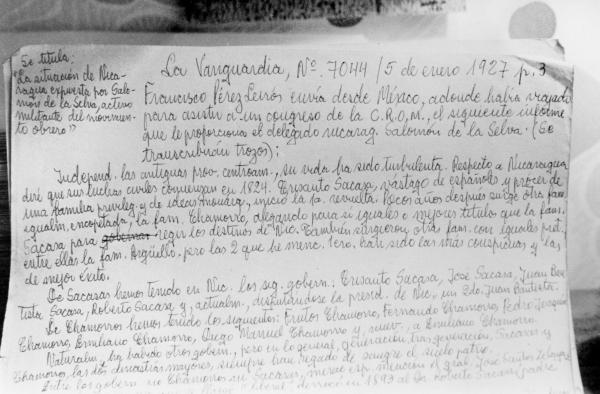 Se titula:
"La situación de Nica-
ragua expuesta por Salo-
món de la Selva, activo
militante del movimien-
to obrero"
La Vanguardia, Nº. 7044 / 5 de enero 1927 p. 3
Francisco Pérez Leirós envía desde México, adonde había viajado
para asistir a un congreso de la C.R.O.M., el siguiente informe
que le proporciona el delegado nicarag. Salomón de la Selva. (Se
transcribirán trozos):
Independ. las antiguas prov. centroam., su vida ha sido turbulenta. Respecto a Nicaragua
diré que sus luchas civiles comienzan en 1824. Crisanto Sacasa, vástago de españoles y prócer de
una familia privileg. y de ideas monárq., inició la 1a. revuelta. Pocos años después surge otra fam.
igualm. encopetada, la fam. Chamorro, alegando para sí iguales o mejores títulos que la fam.
Sacasa para gobernar regir los destinos de Nic. También surgieron otras fam. con iguales pret.,
entre ellas la fam. Argüello, pero las 2 que he menc. 1ero. han sido las más conspicuas y las
de mejor éxito.
De Sacasas hemos tenido en Nic. los sig. gobern.: Crisanto Sacasa, José Sacasa, Juan Bau
tista Sacasa, Roberto Sacasa y, actualm., disputándose la presid. de Nic., un 2do. Juan Bautista.
De Chamorros hemos tenido los siguientes: Frutos Chamorro, Fernando Chamorro, Pedro Joaquín
Chamorro, Emiliano Chamorro, Diego Manuel Chamorro y, nuev., a Emiliano Chamorro.
Naturalm. ha habido otros gobern., pero en lo general, generación tras generación, Sacasas y
Chamorros, las dos dinastías mayores, siempre han regado de sangre el suelo patrio.
Entre los gobern. no Chamorros ni Sacasas, merece esp. mención el gral. José Santos Zelaya
"liberal" derrocó en 1893 al Dr. Roberto Sacasa, padre